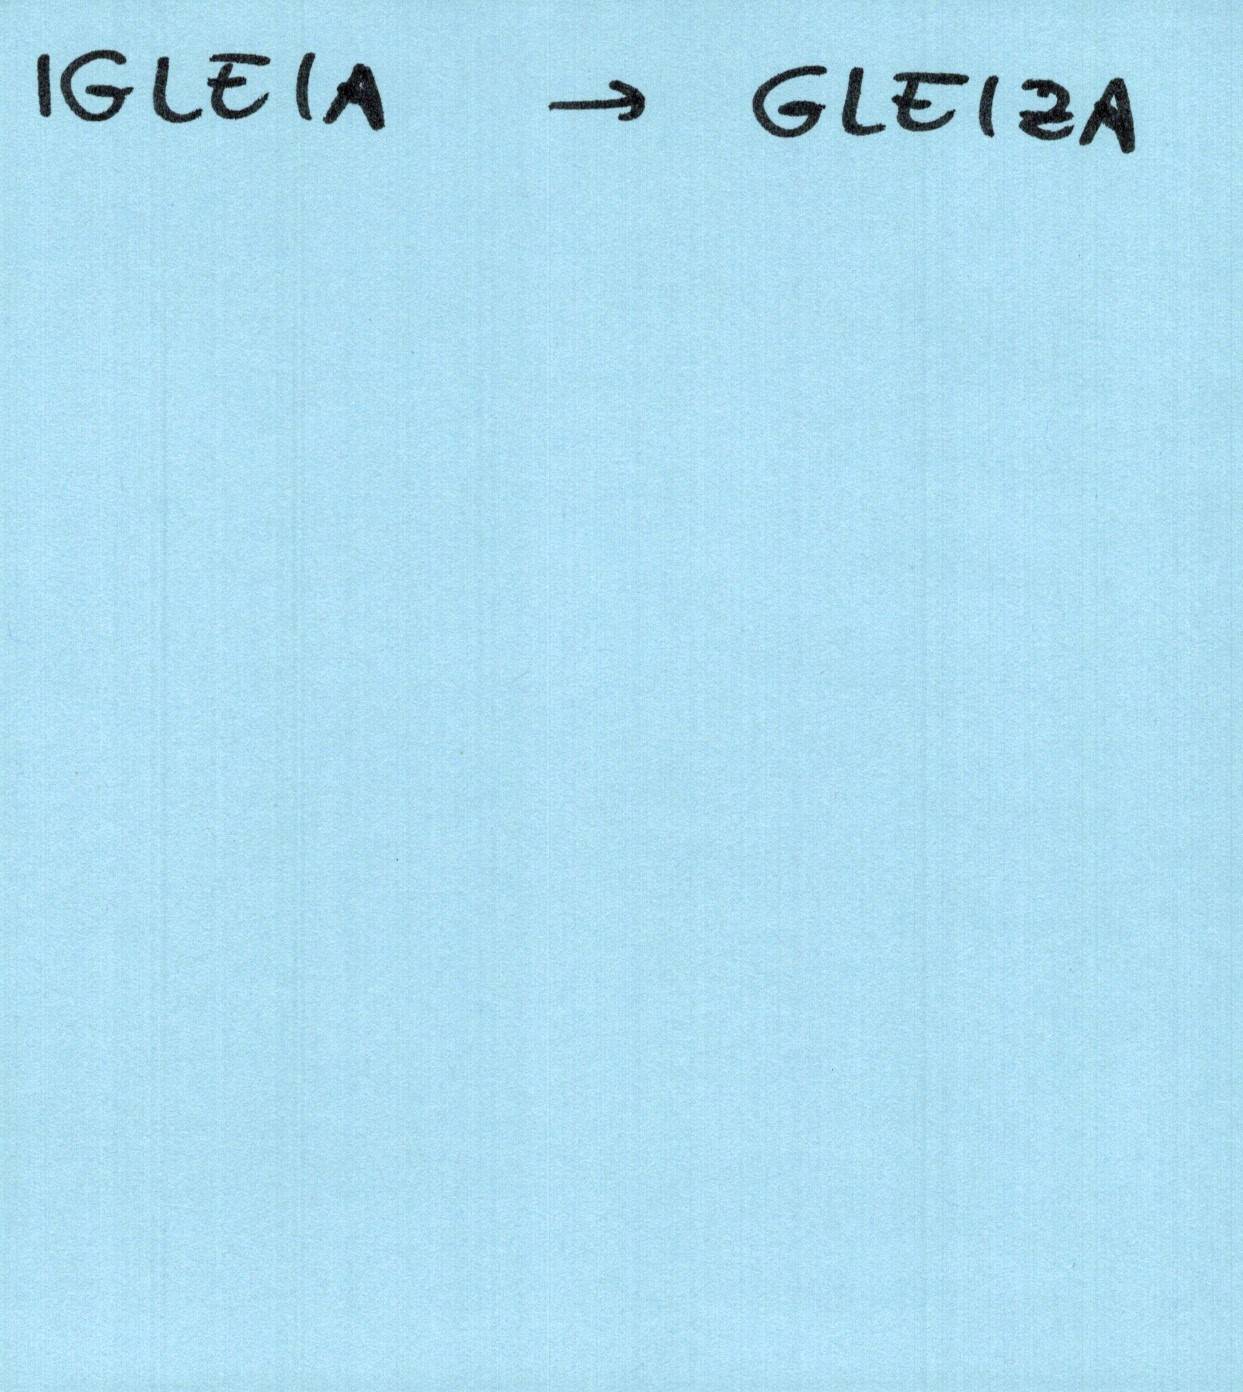 IGLEIA → GLEIZA